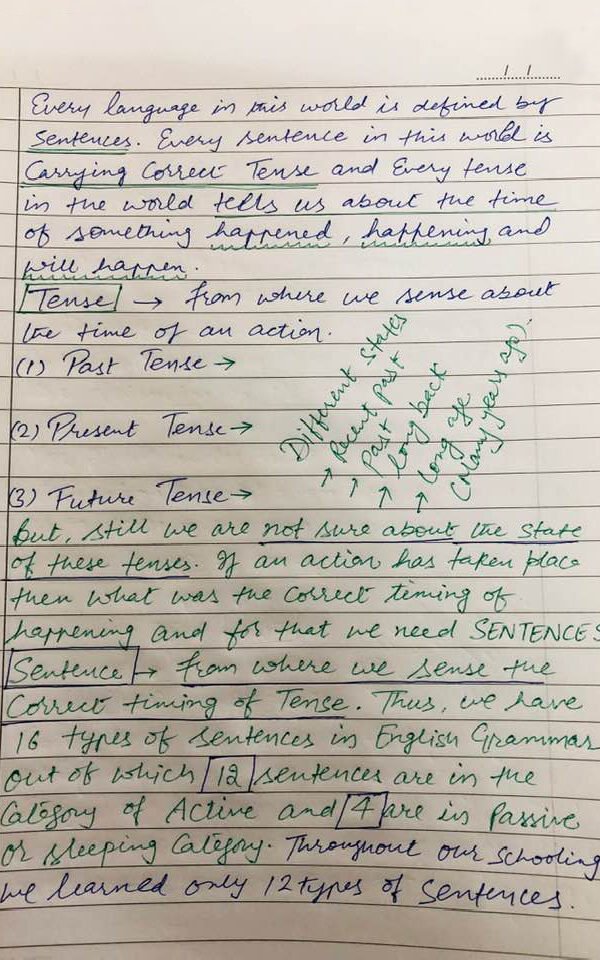 Every language in this world is defined by
Sentences. Every sentence in this world is
Carrying Correct Tense and Every tense
in the world tells us about the time
of something happened, happening and
will happen.
Tense → from where we sense about
the time of an action.
(1) Past Tense →
(2) Present Tense →
(3) Future Tense →
Different States
→ Recent past
→ Past
→ Long back
→ Long age
(Many years ago).
But, still we are not sure about the state
of these tenses. If an action has taken place
then what was the correct timing of
happening and for that we need SENTENCES
Sentence → from where we sense the
Correct timing of Tense. Thus, we have
16 types of sentences in English Grammar
out of which 12 sentences are in the
Category of Active and 4 are in Passive
or sleeping Category. Throughout our schooling
we learned only 12 types of sentences.